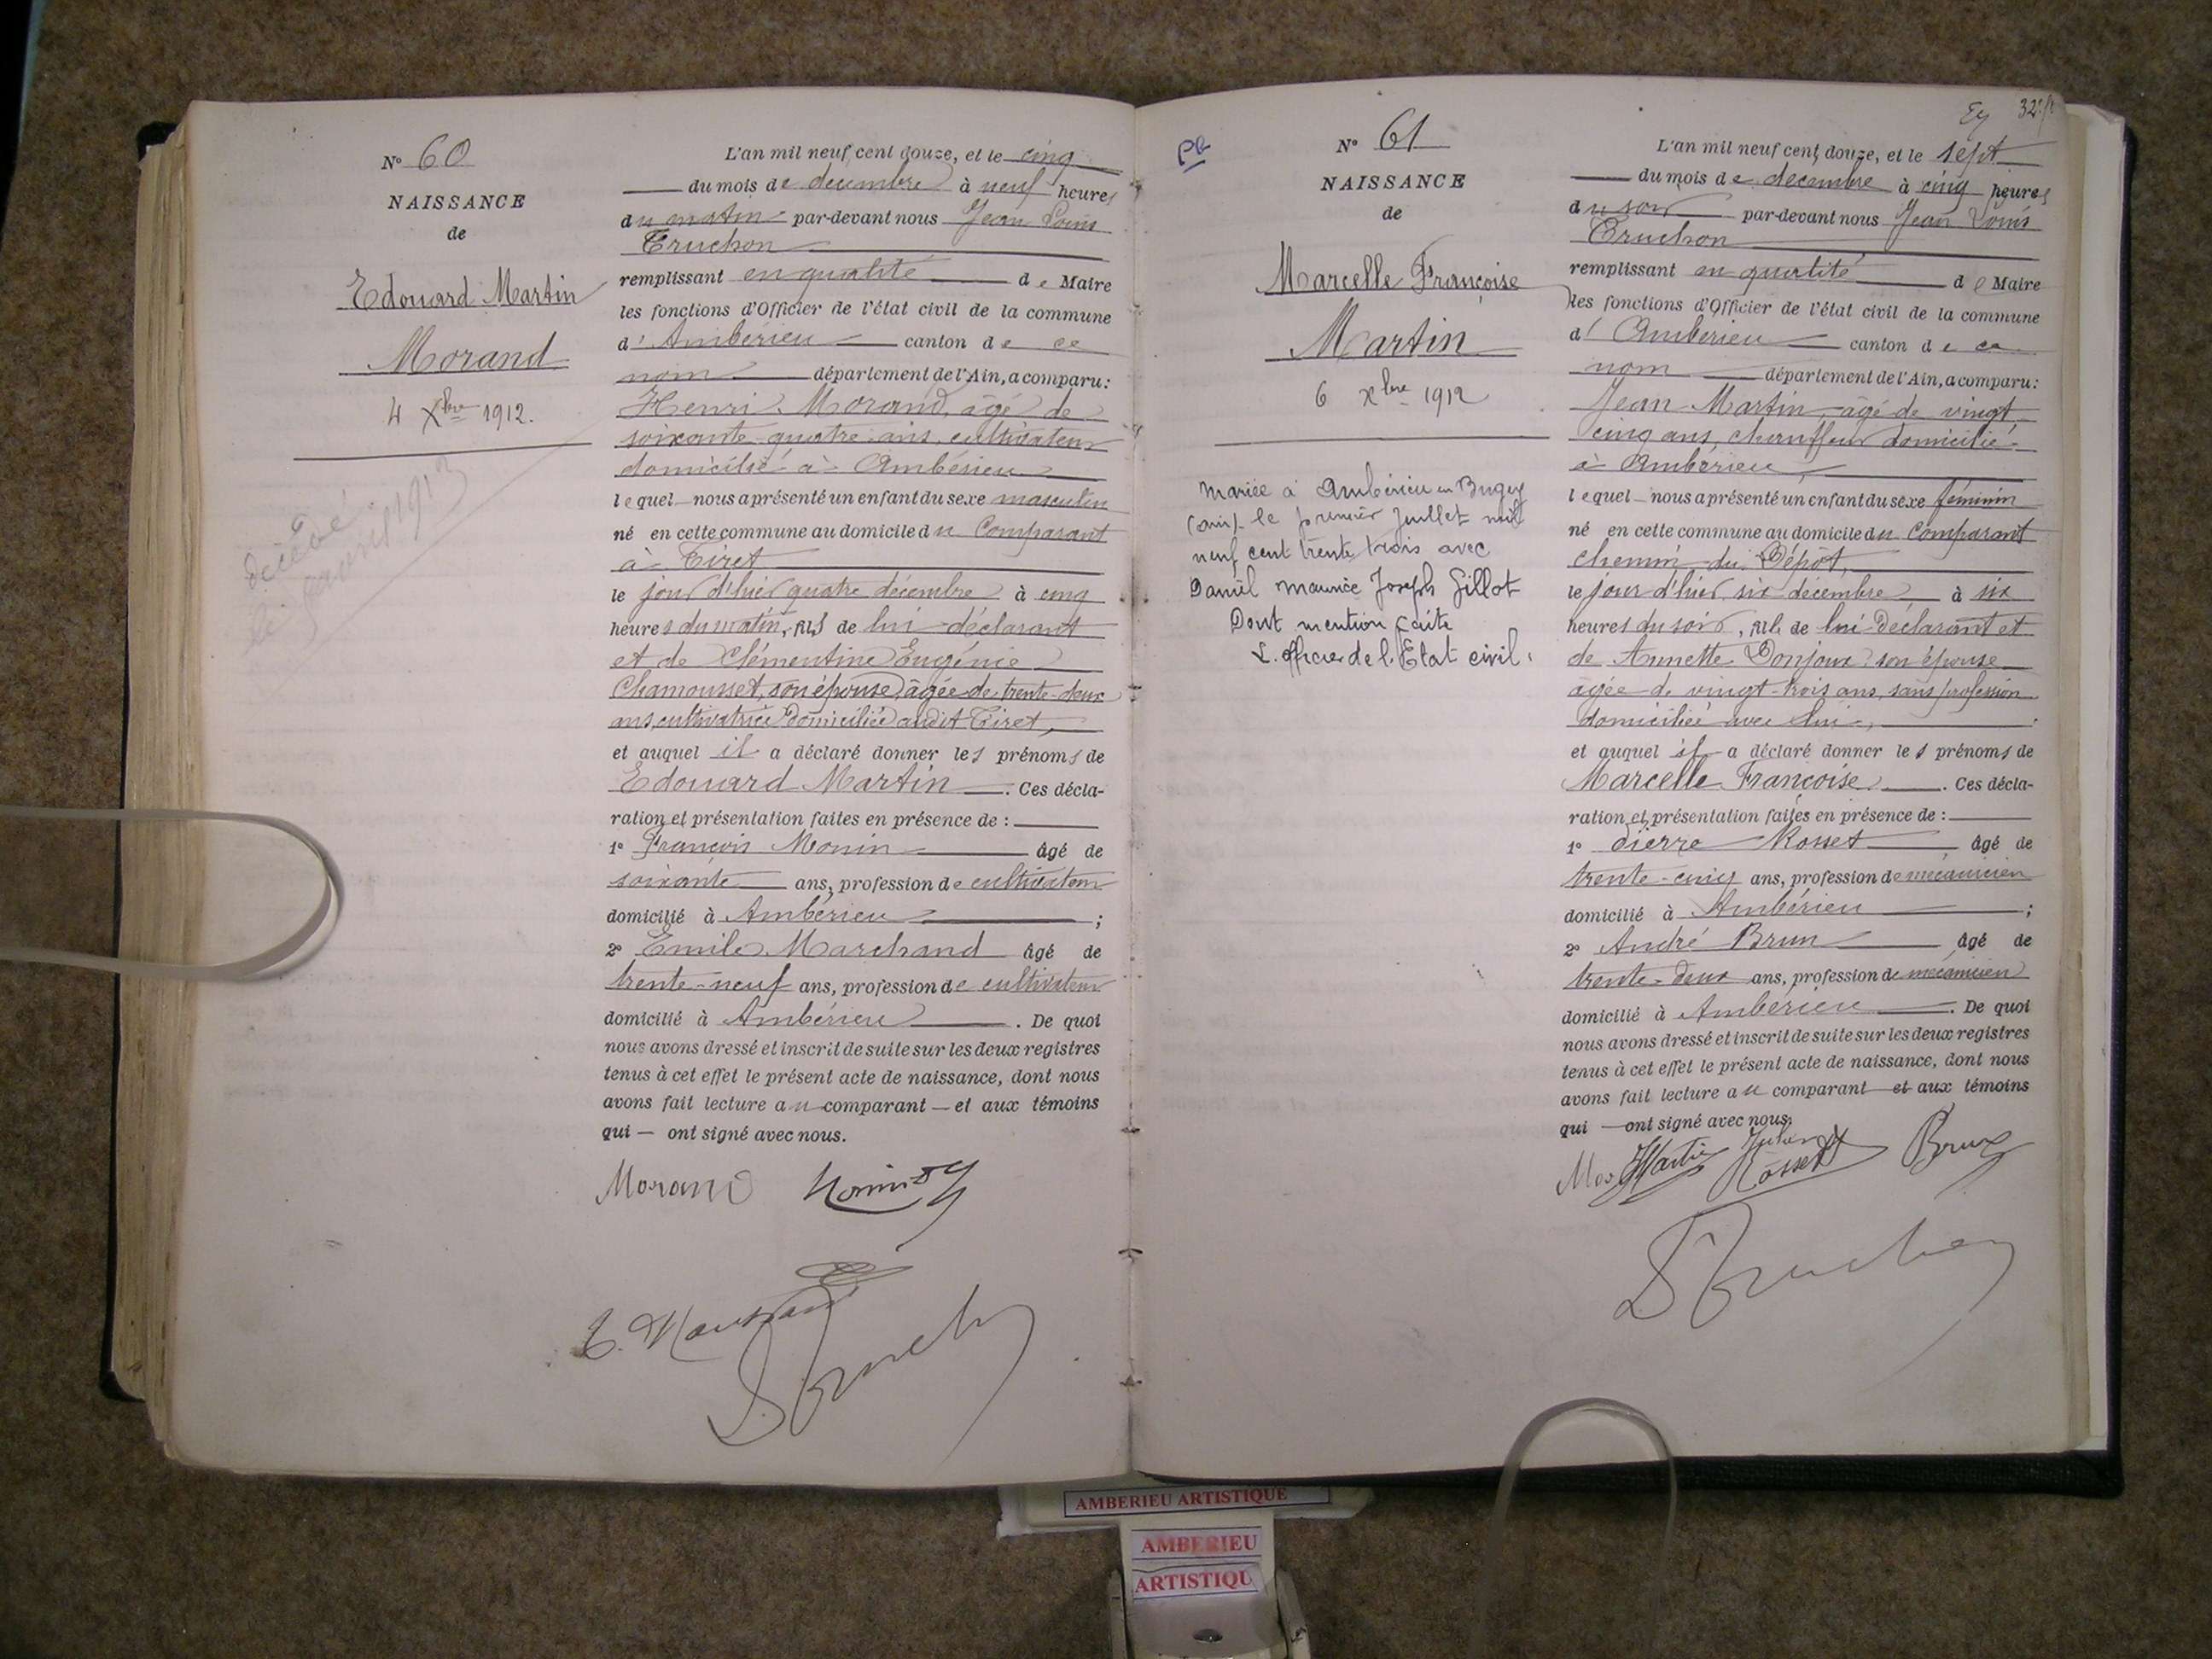 N° 60
NAISSANCE
de
Edouard Martin
Morand
4 Xbre 1912.
décédé
1913
L'an mil neuf cent douze, et le cinq
du mois de decembre à neuf heures
du matin par-devant nous Jean Louis
Truchon
remplissant en qualité de Maire
les fonctions d'Officier de l'état civil de la commune
d'Ambérieu canton de ce
nom département de l'Ain, a comparu:
Henri Morand, âgé de
soixante-quatre ans, cultivateur
domicilié à Ambérieu
lequel nous a présenté un enfant du sexe masculin
né en cette commune au domicile du Comparant
à Tiret
le jour d'hier quatre décembre à cinq
heures du matin, fils de lui déclarant
et de Clémentine Eugénie
Chamousset, son épouse, âgée de trente-deux
ans, cultivatrice domiciliée audit Tiret,
et auquel il a déclaré donner les prénoms de
Edouard Martin. Ces décla-
ration et présentation faites en présence de :
1° François Monin âgé de
soixante ans, profession de cultivateur
domicilié à Ambérieu ;
2° Emile Marchand âgé de
trente-neuf ans, profession de cultivateur
domicilié à Ambérieu. De quoi
nous avons dressé et inscrit de suite sur les deux registres
tenus à cet effet le présent acte de naissance, dont nous
avons fait lecture au comparant — et aux témoins
qui — ont signé avec nous.
Morand
E. Marchand
Ey
PR
N° 61
NAISSANCE
de
Marcelle Françoise
Martin
6 xbre 1912
Mariée à Ambérieu en Bugey
(Ain) le premier Juillet mil
neuf cent trente trois avec
Daniel Maurice Joseph Gillot
Dont mention faite
L. officier de l'Etat civil.
L'an mil neuf cent douze, et le sept
du mois de decembre à cinq heures
du soir par-devant nous Jean Louis
Truchon
remplissant en qualité de Maire
les fonctions d'Officier de l'état civil de la commune
d'Ambérieu canton de ce
nom département de l'Ain, a comparu:
Jean Martin, âgé de vingt
cinq ans, chauffeur domicilié
à Ambérieu
lequel nous a présenté un enfant du sexe féminin
né en cette commune au domicile du Comparant
chemin du Dépôt,
le jour d'hier six décembre à six
heures du soir, fille de lui Déclarant et
de Annette Donjoux son épouse
âgée de vingt-trois ans, sans profession
domiciliée avec lui,
et auquel il a déclaré donner les prénoms de
Marcelle Françoise. Ces décla-
ration et présentation faites en présence de :
1° Pierre Rosset âgé de
trente-cinq ans, profession de mécanicien
domicilié à Ambérieu ;
2° André Brun âgé de
trente-deux ans, profession de mécanicien
domicilié à Ambérieu. De quoi
nous avons dressé et inscrit de suite sur les deux registres
tenus à cet effet le présent acte de naissance, dont nous
avons fait lecture au comparant et aux témoins
qui — ont signé avec nous.
Martin Rosset Brun
Truchon
AMBERIEU ARTISTIQUE
AMBERIEU
ARTISTIQU